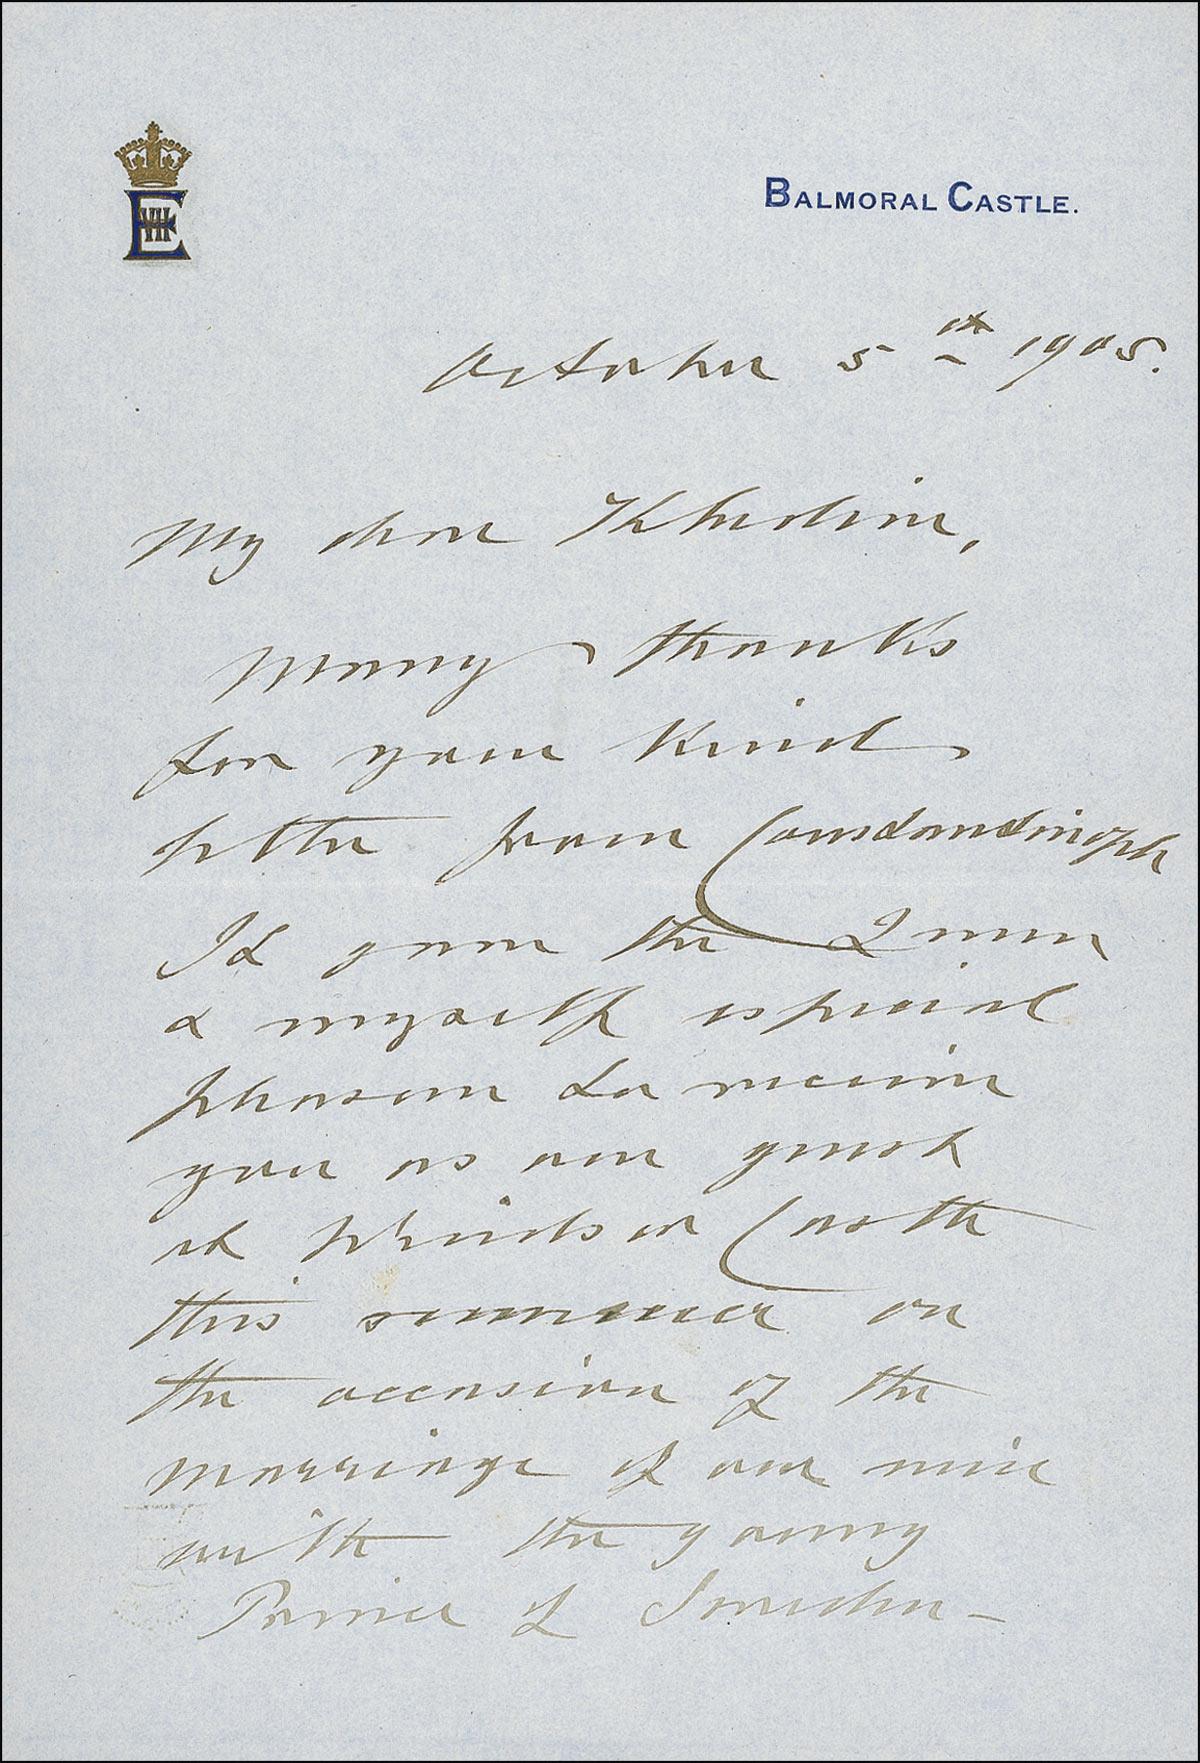 E VII
BALMORAL CASTLE.
October 5th 1905.
My dear Khedive,
Many thanks
for your kind
letter from Constantinople
It gave the Queen
& myself especial
pleasure to receive
you as our guest
at Windsor Castle
this summer on
the occasion of the
marriage of our niece
with the young
Prince of Sweden –